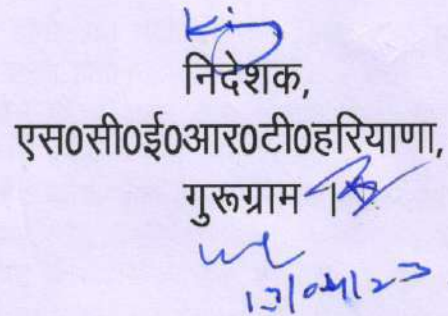 निदेशक,
एस0सी0ई0आर0टी0हरियाणा,
गुरूग्राम ।
13/04/23